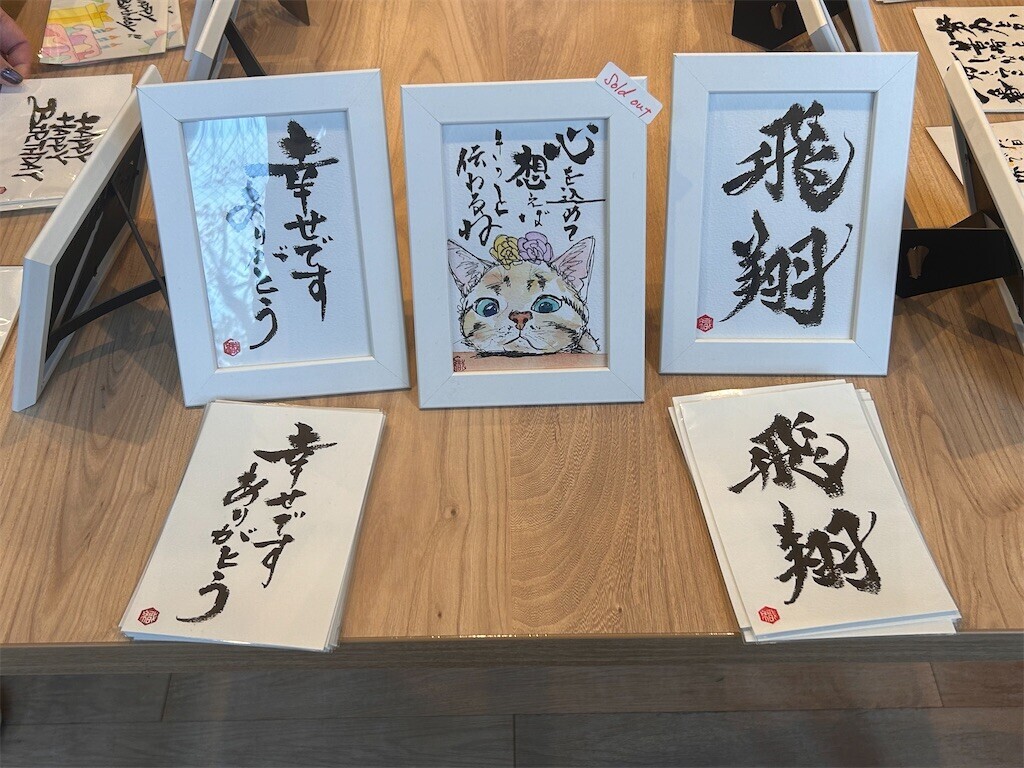 Happy
Birthday!
HAPPY
HAPPY
BIRTHDAY
幸せです
ありがとう
心を込めて
想えば
きっと
伝わるね
Sold out
飛
翔
幸せです
ありがとう
飛
翔